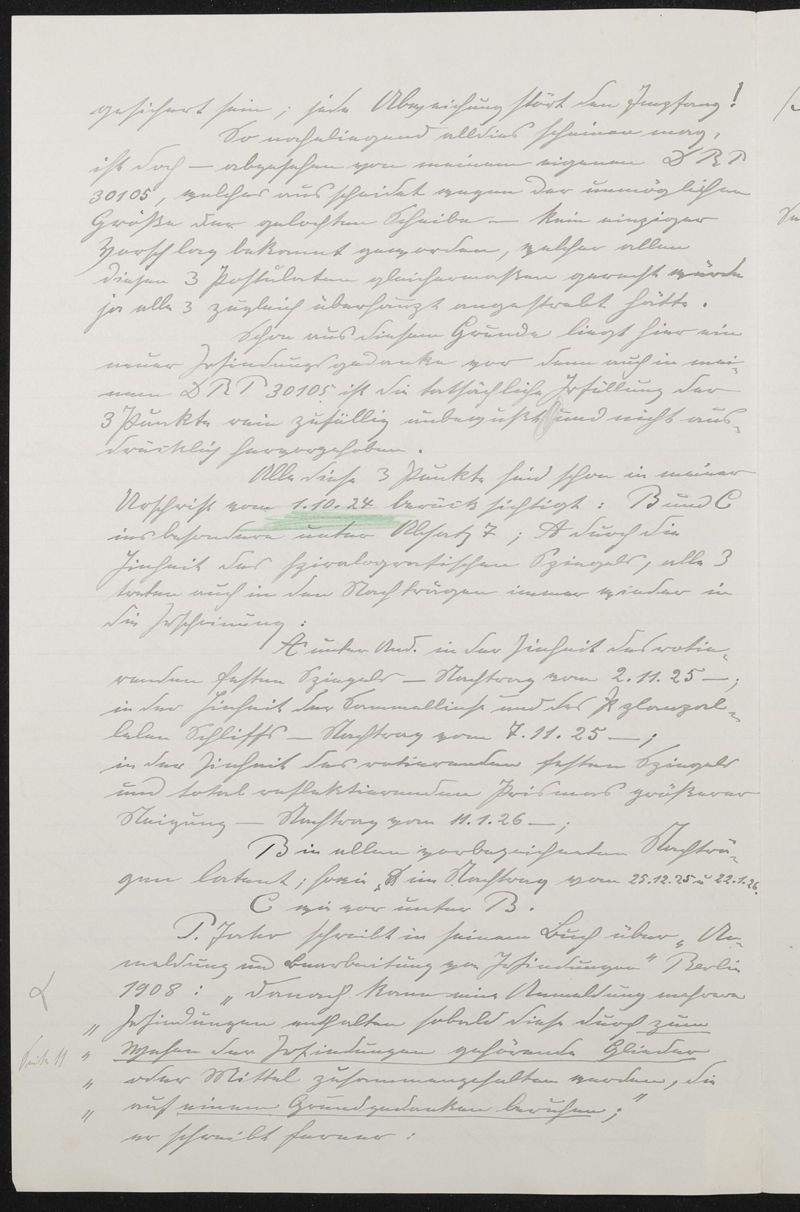 gesichert sein; jede Abweichung stört den Empfang!
So naheliegend alldies scheinen mag,
ist doch — abgesehen von meinem eigenen DRP
30105, welches ausscheidet wegen der unmöglichen
Größe der gelochten Scheibe — kein einziger
Vorschlag bekannt geworden, welcher allen
diesen 3 Postulaten gleichermaßen gerecht würde
ja alle 3 zugleich überhaupt angestrebt hätte.
Schon aus diesem Grunde liegt hier ein
neuer Erfindungsgedanke vor denn auch in mei-
nem DRP 30105 ist die tatsächliche Erfüllung der
3 Punkte rein zufällig unbewußt und nicht aus-
drücklich hervorgehoben.
Alle diese 3 Punkte sind schon in meiner
Urschrift vom 1.10.24 berücksichtigt: B und C
insbesondere unter Absatz 7; A durch die
Einheit des spiralografischen Spiegels, alle 3
treten auch in den Nachträgen immer wieder in
die Erscheinung:
A unter And. in der Einheit des rotie-
renden festen Spiegels — Nachtrag vom 2.11.25 —;
in der Einheit der Sammellinse und des planpal-
lelen Schliffs — Nachtrag vom 7.11.25 —;
in der Einheit des rotierenden festen Spiegels
und total reflektierenden Prismas größerer
Neigung — Nachtrag vom 11.1.26 —;
B in allen vorbezeichneten Nachträ-
gen latent; sowie im Nachtrag vom 25.12.25 u 22.1.26.
C wie vor unter B.
P. schreibt in seinem Buch über „An-
meldung und Bearbeitung von Erfindungen" Berlin
1908: „danach kann eine Anmeldung mehrere
„ Erfindungen enthalten sobald diese durch zum
Seite 11 „ Wesen der Erfindungen gehörende Glieder
„ oder Mittel zusammengehalten werden, die
„ auf einem Grundgedanken beruhen;"
er schreibt ferner: